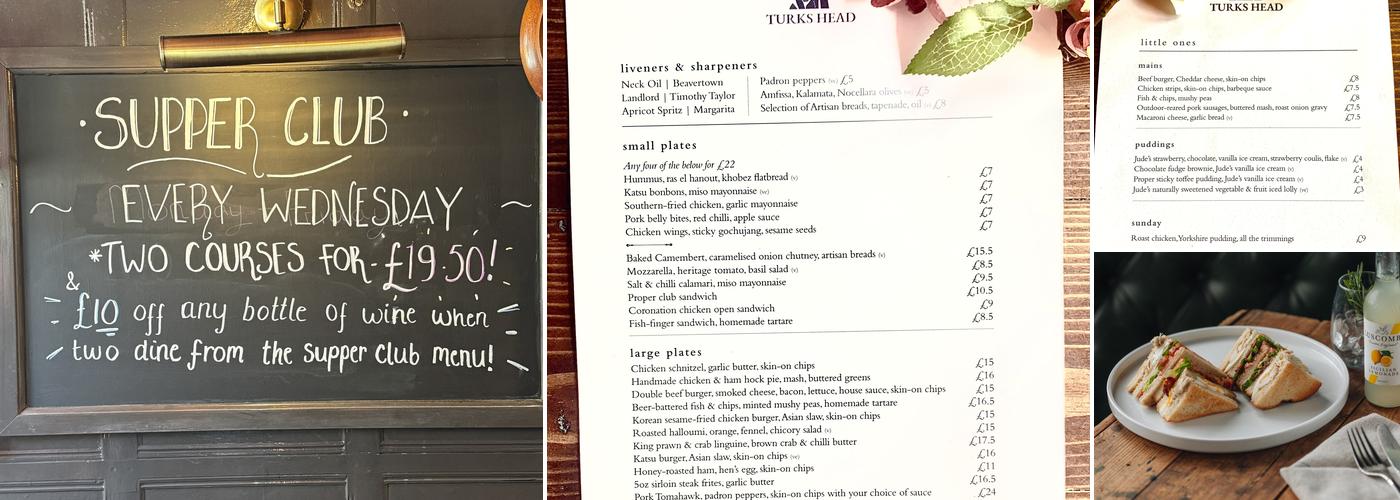 ·SUPPER CLUB·
EVERY WEDNESDAY
*TWO COURSES FOR £19.50!
&
£10 off any bottle of wine when
two dine from the supper club menu!
TURKS HEAD
liveners & sharpeners
Neck Oil | Beavertown
Landlord | Timothy Taylor
Apricot Spritz | Margarita
Padron peppers (ve) £5
Amfissa, Kalamata, Nocellara olives (ve) £5
Selection of Artisan breads, tapenade, oil (v) £8
small plates
Any four of the below for £22
Hummus, ras el hanout, khobez flatbread (v) £7
Katsu bonbons, miso mayonnaise (ve) £7
Southern-fried chicken, garlic mayonnaise £7
Pork belly bites, red chilli, apple sauce £7
Chicken wings, sticky gochujang, sesame seeds £7
Baked Camembert, caramelised onion chutney, artisan breads (v) £15.5
Mozzarella, heritage tomato, basil salad (v) £8.5
Salt & chilli calamari, miso mayonnaise £9.5
Proper club sandwich £10.5
Coronation chicken open sandwich £9
Fish-finger sandwich, homemade tartare £8.5
large plates
Chicken schnitzel, garlic butter, skin-on chips £15
Handmade chicken & ham hock pie, mash, buttered greens £16
Double beef burger, smoked cheese, bacon, lettuce, house sauce, skin-on chips £15
Beer-battered fish & chips, minted mushy peas, homemade tartare £16.5
Korean sesame-fried chicken burger, Asian slaw, skin-on chips £15
Roasted halloumi, orange, fennel, chicory salad (v) £15
King prawn & crab linguine, brown crab & chilli butter £17.5
Katsu burger, Asian slaw, skin-on chips (ve) £16
Honey-roasted ham, hen's egg, skin-on chips £11
5oz sirloin steak frites, garlic butter £16.5
Pork Tomahawk, padron peppers, skin-on chips with your choice of sauce £24
TURKS HEAD
little ones
mains
Beef burger, Cheddar cheese, skin-on chips £8
Chicken strips, skin-on chips, barbeque sauce £7.5
Fish & chips, mushy peas £8
Outdoor-reared pork sausages, buttered mash, roast onion gravy £7.5
Macaroni cheese, garlic bread (v) £7.5
puddings
Jude's strawberry, chocolate, vanilla ice cream, strawberry coulis, flake (v) £4
Chocolate fudge brownie, Jude's vanilla ice cream (v) £4
Proper sticky toffee pudding, Jude's vanilla ice cream (v) £4
Jude's naturally sweetened vegetable & fruit iced lolly (ve) £3
sunday
Roast chicken, Yorkshire pudding, all the trimmings £9
USCOMB
SICILIAN
LEMONADE